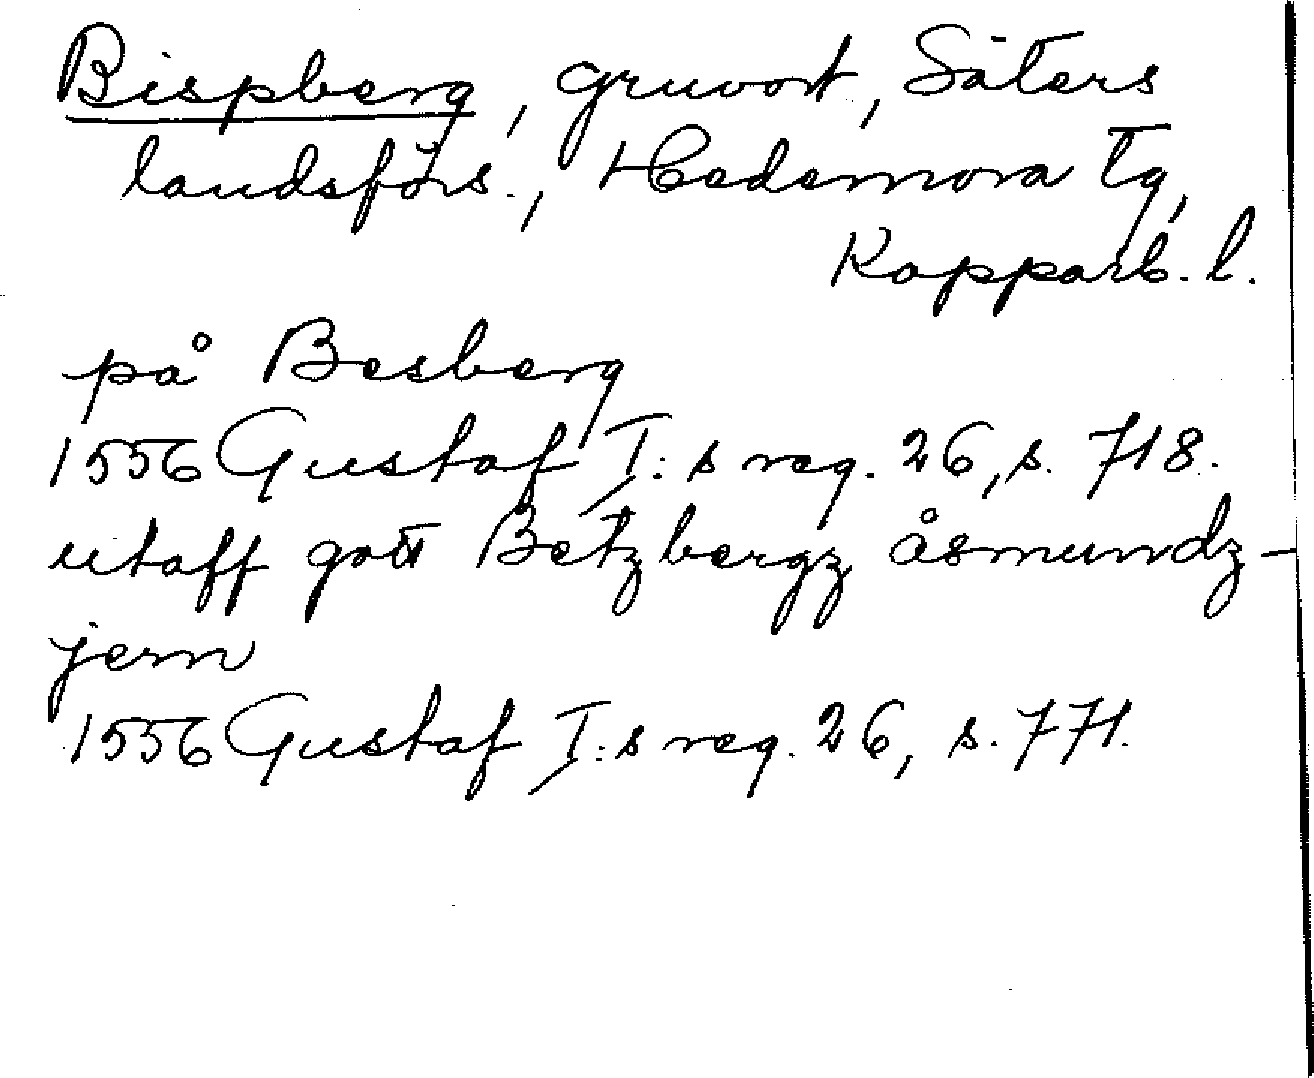 Bispberg, gruvort, Säters
landsförs., Hedemora tg,
Kopparb. l.
på Besberg
1556 Gustaf I:s reg. 26, s. 718.
utaff gott Betzbergz åsmundz-
jern
1556 Gustaf I:s reg. 26, s. 771.